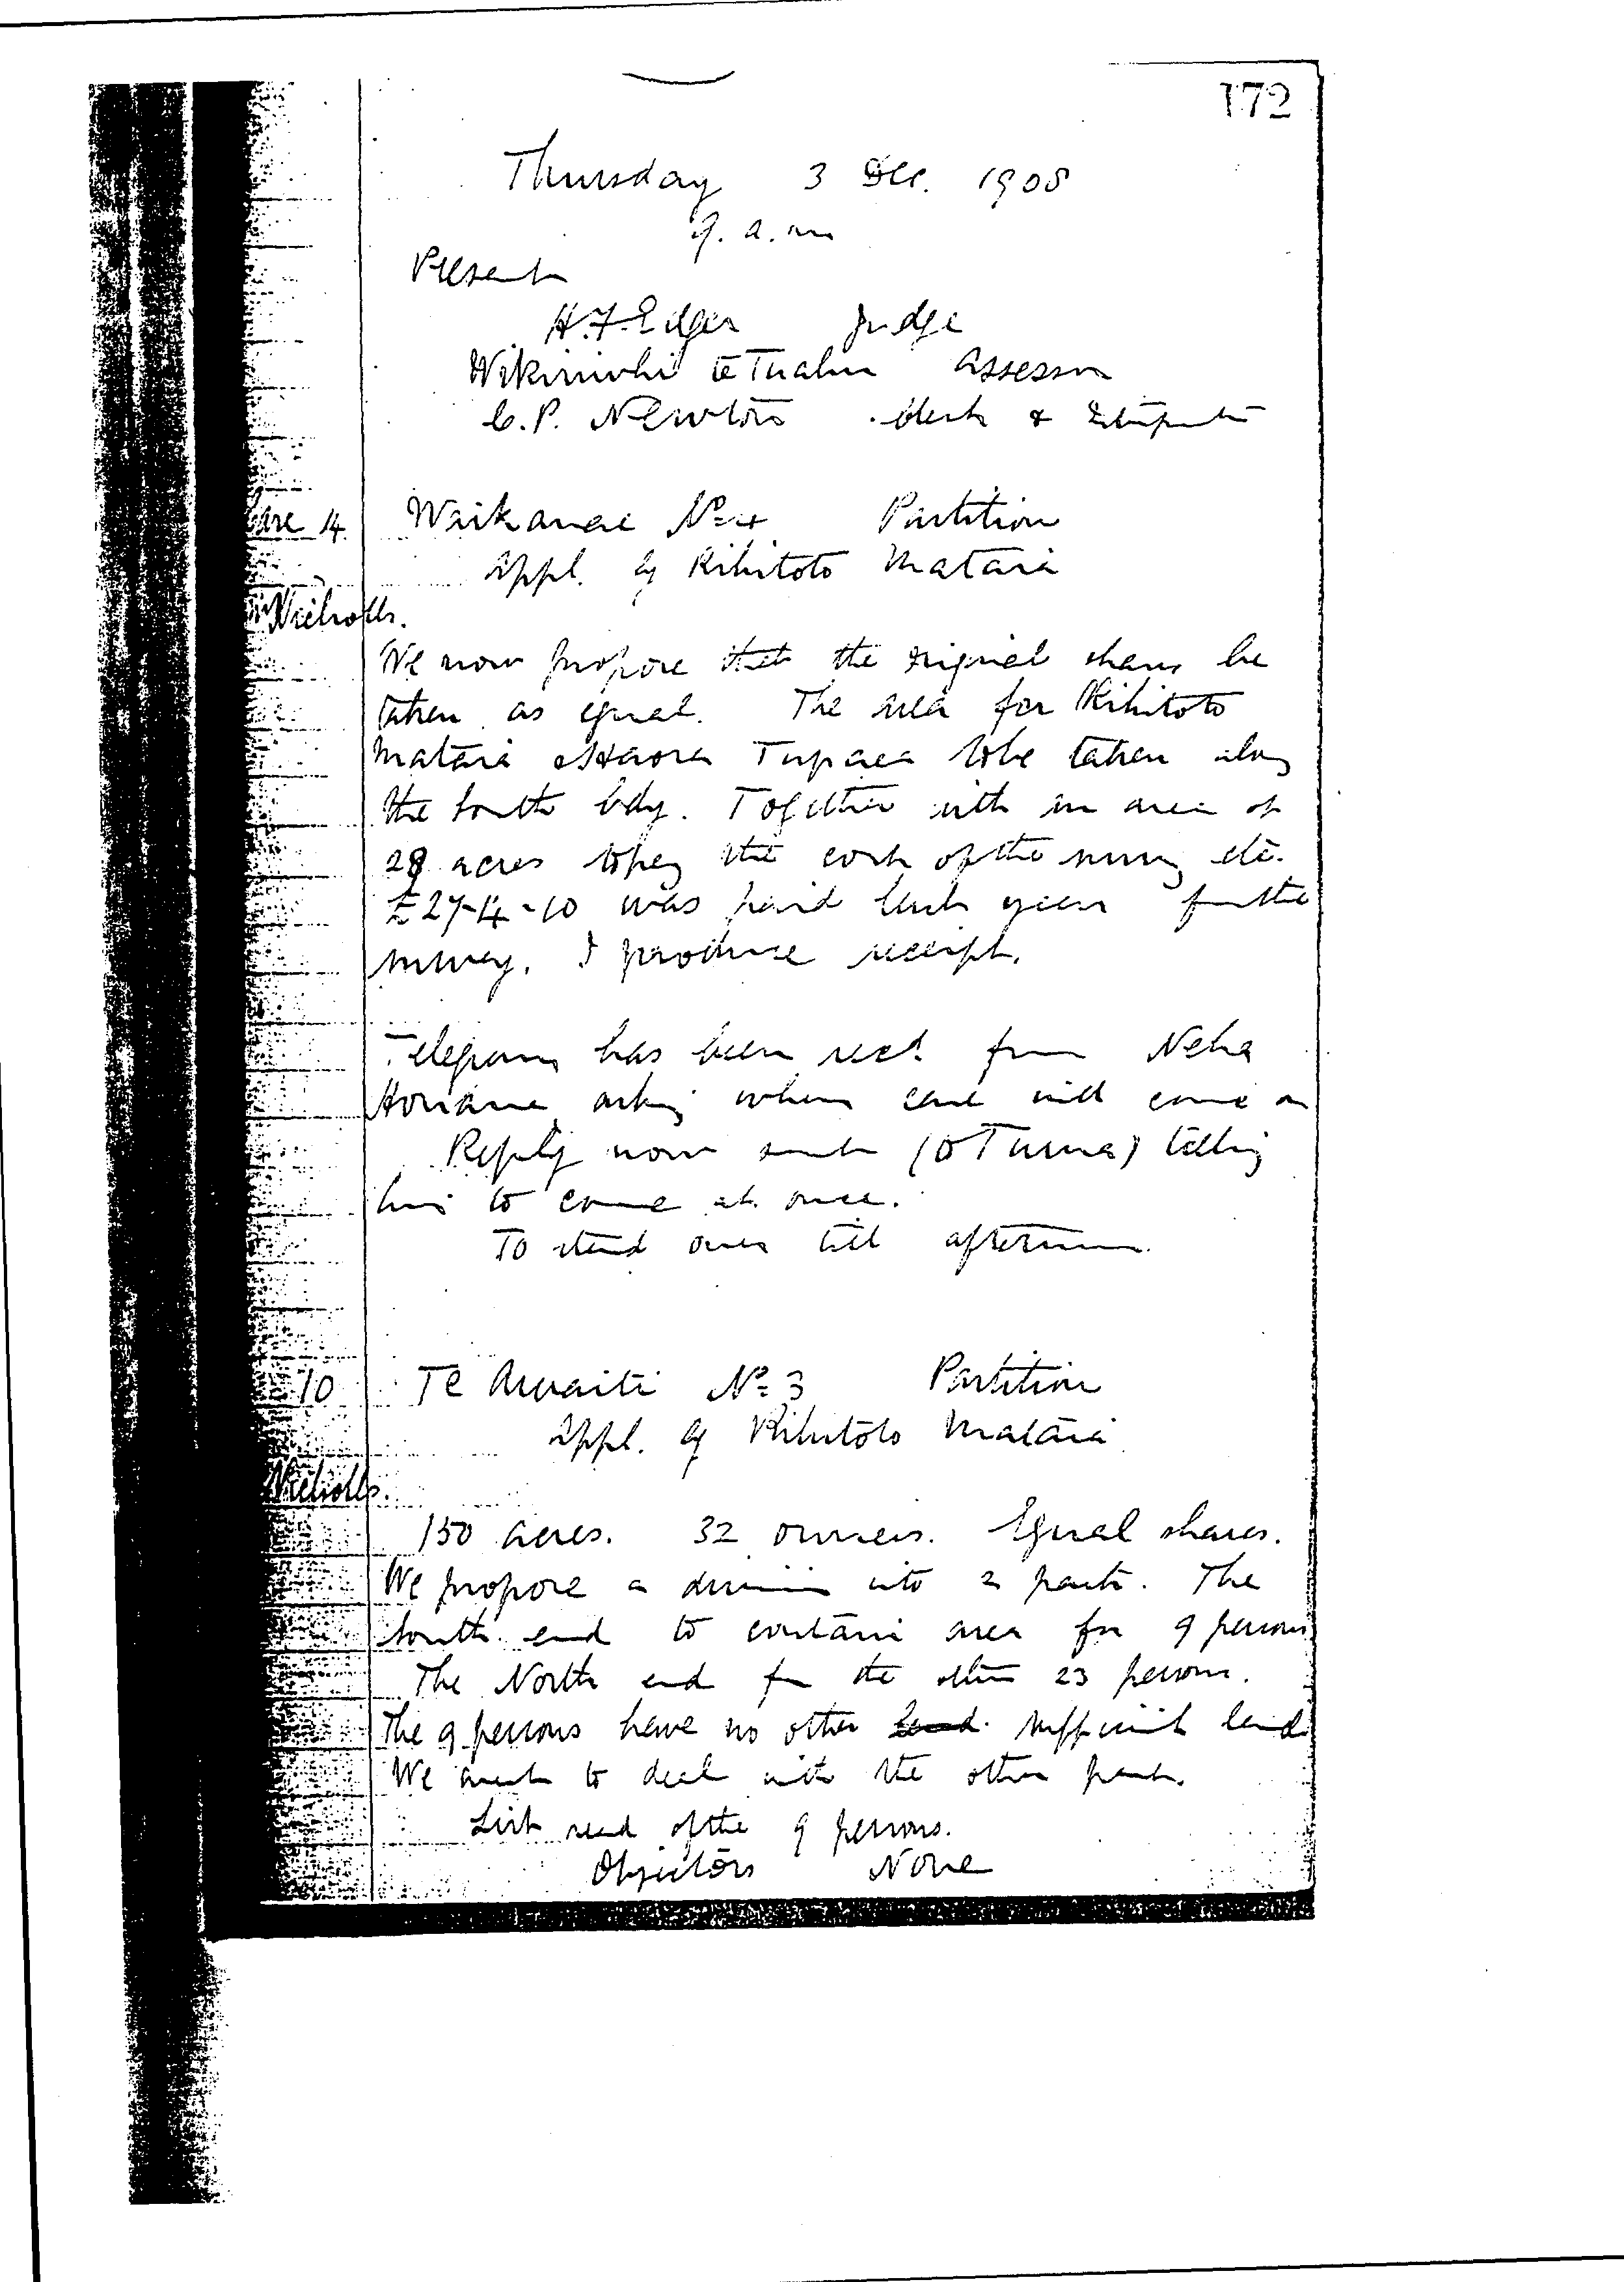 172
Thursday 3 Dec. 1908
9. a.m
Present
H.F. Edger Judge
Wikiriwhi te Tuahu Assessor
C.P. Newton Clerk & Interpreter
14 Waikanae No 4 Partition
Appl. of Kihitoto Mataia
Nicholls.
We now propose that the original shares be
taken as equal. The area for Kihitoto
Mataia & Haora Tupaea to be taken along
the South bdy. Together with an area of
28 acres to pay the cost of the survey etc.
£27-4-10 was paid last year for the
survey. I produce receipt.
Telegram has been recd from Neha
Horiana asking when case will come on
Reply now sent (to Turua) telling
him to come at once.
To stand over till afternoon.
10 Te Awaiti No 3 Partition
Appl. of Kihitoto Mataia
Nicholls.
150 acres. 32 owners. Equal shares.
We propose a division into 2 parts. The
South end to contain area for 9 persons
The North end for the other 23 persons.
The 9 persons have no other land. sufficient land
We want to deal with the other part.
List read of the 9 persons.
Objectors None